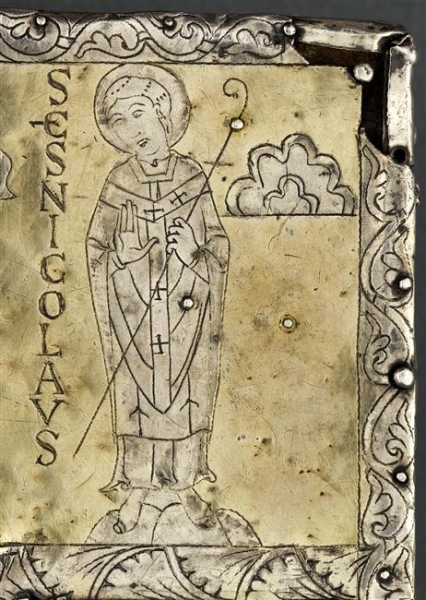 SC̄S NICOLAVS